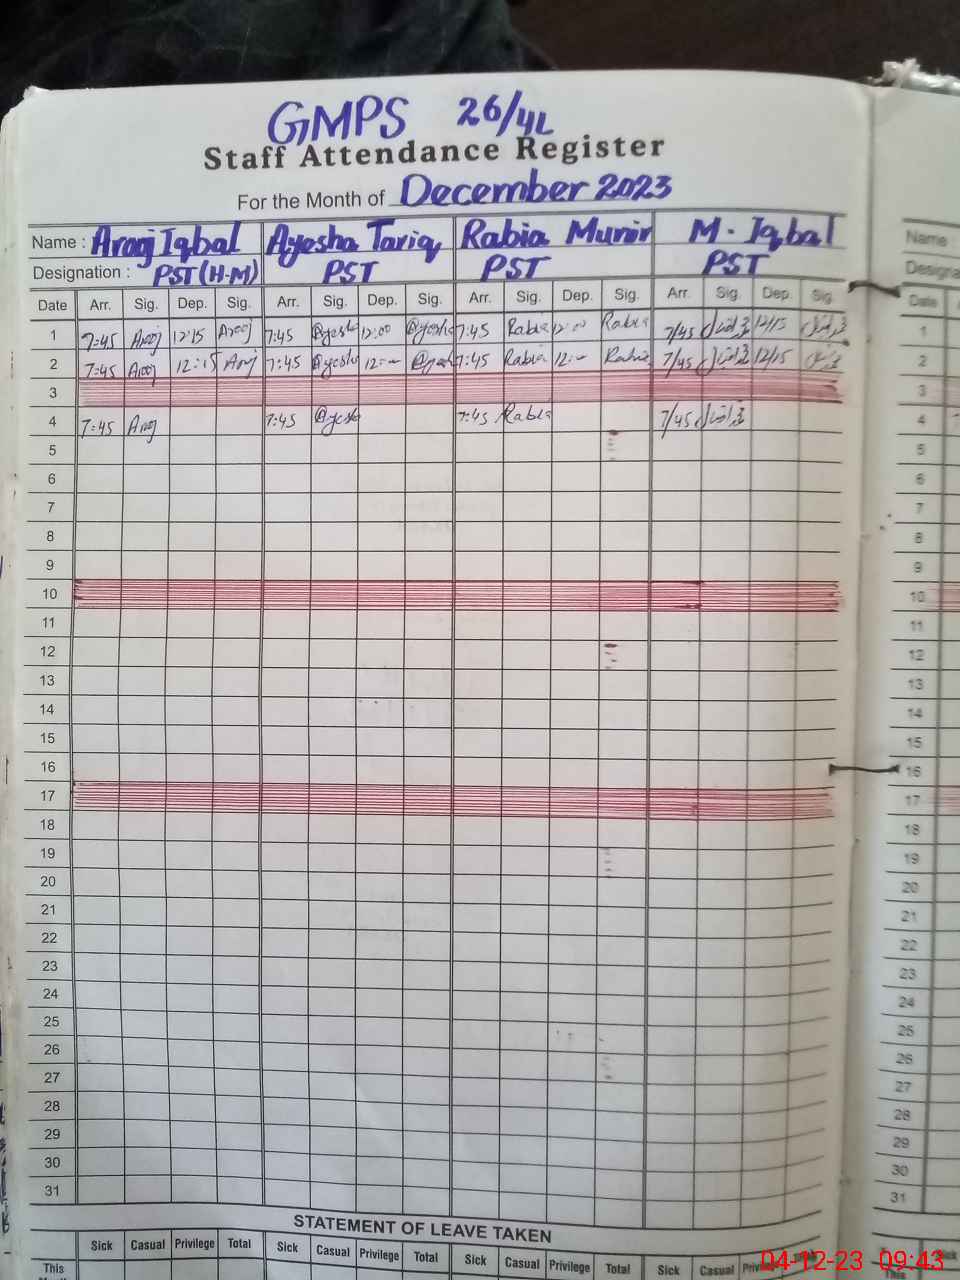 GMPS 26/4L
Staff Attendance Register
For the Month of December 2023
Name : Arooj Iqbal Ayesha Tariq Rabia Munir M. Iqbal
Designation : PST (H-M) PST PST PST
Date Arr. Sig. Dep. Sig. Arr. Sig. Dep. Sig. Arr. Sig. Dep. Sig. Arr. Sig. Dep. Sig.
1 7:45 Arooj 12:15 Arooj 7:45 Ayesha 12:00 Ayesha 7:45 Rabia 12:00 Rabia 7/45 محمد اقبال 12/15 محمد اقبال
2 7:45 Arooj 12:15 Arooj 7:45 Ayesha 12:00 Ayesha 7:45 Rabia 12:00 Rabia 7/45 محمد اقبال 12/15
3
4 7:45 Arooj 7:45 Ayesha 7:45 Rabia 7/45 محمد اقبال
5
6
7
8
9
10
11
12
13
14
15
16
17
18
19
20
21
22
23
24
25
26
27
28
29
30
31
STATEMENT OF LEAVE TAKEN
Sick Casual Privilege Total Sick Casual Privilege Total Sick Casual Privilege Total Sick Casual
This
Name :
Date
1
2
3
4
5
6
7
8
9
10
11
12
13
14
15
16
17
18
19
20
21
22
23
24
25
26
27
28
29
30
31
Sick
This
04-12-23 09:43